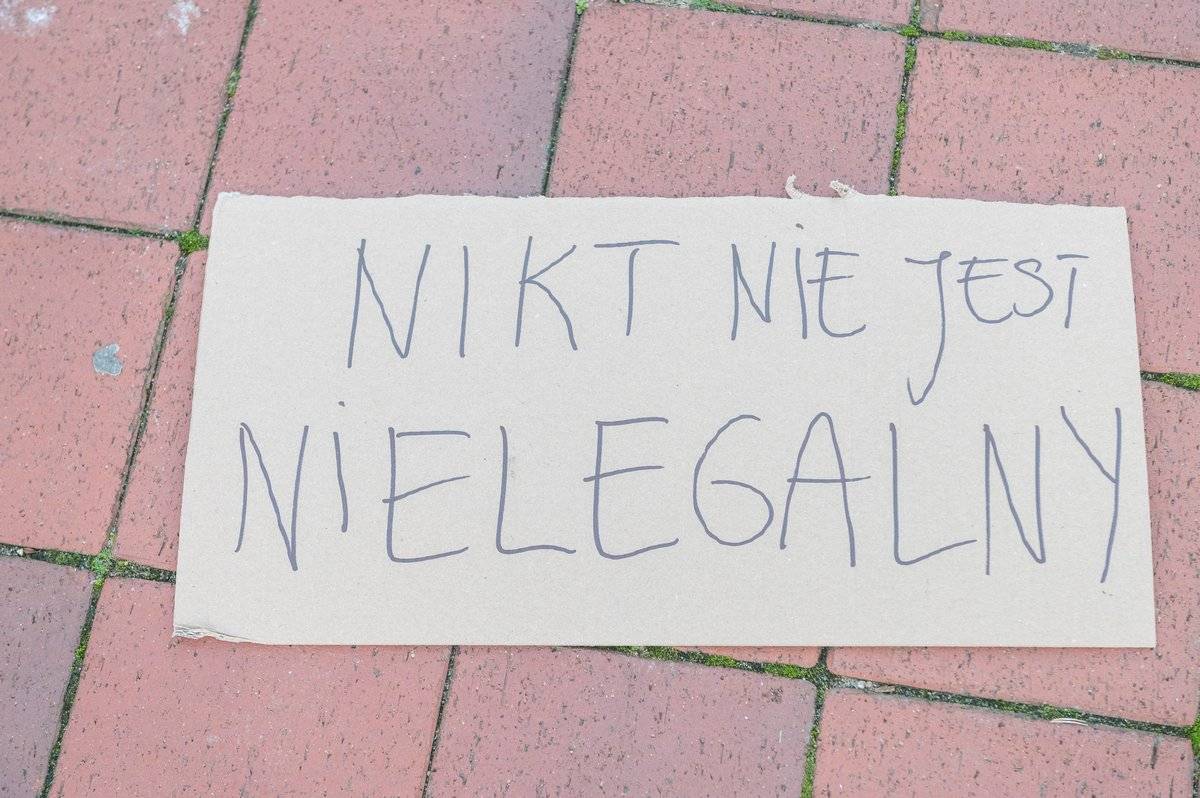 NIKT NiE JEST
NiELEGALNY